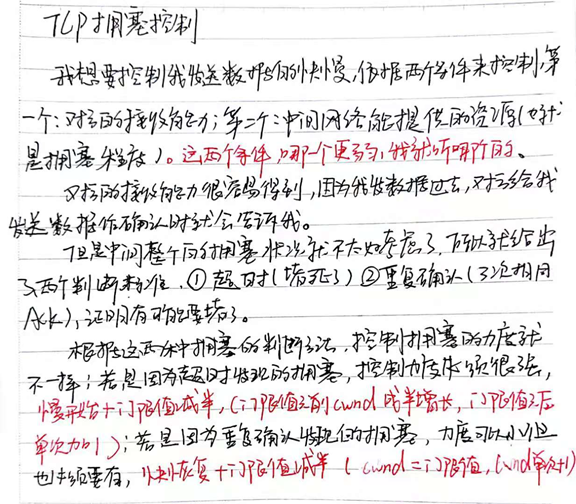 TCP拥塞控制
我想要控制我发送数据的快慢,依据两个条件来控制,第
一个:对方的接收能力;第二个:中间网络能提供的资源(也就
是拥塞程度)。这两个条件,哪一个更弱,我就听哪个的。
对方的接收能力很容易得到,因为我发数据过去,对方给我
发送数据作确认时就会告诉我。
但是中间整个的拥塞状况就不太好考虑了,所以就给出
了两个判断标准,①超时(堵死了)②重复确认(3次相同
Ack),证明有可能要堵了。
根据这两种拥塞的判断方法,控制拥塞的力度就
不一样;若是因为超时发现的拥塞,控制力度必须很强,
慢开始+门限值减半,(门限值之前cwnd成半增长,门限值之后
单次加1);若是因为重复确认发现的拥塞,力度可以小但
也必须要有,快恢复+门限值减半(cwnd=门限值,cwnd单次+1)